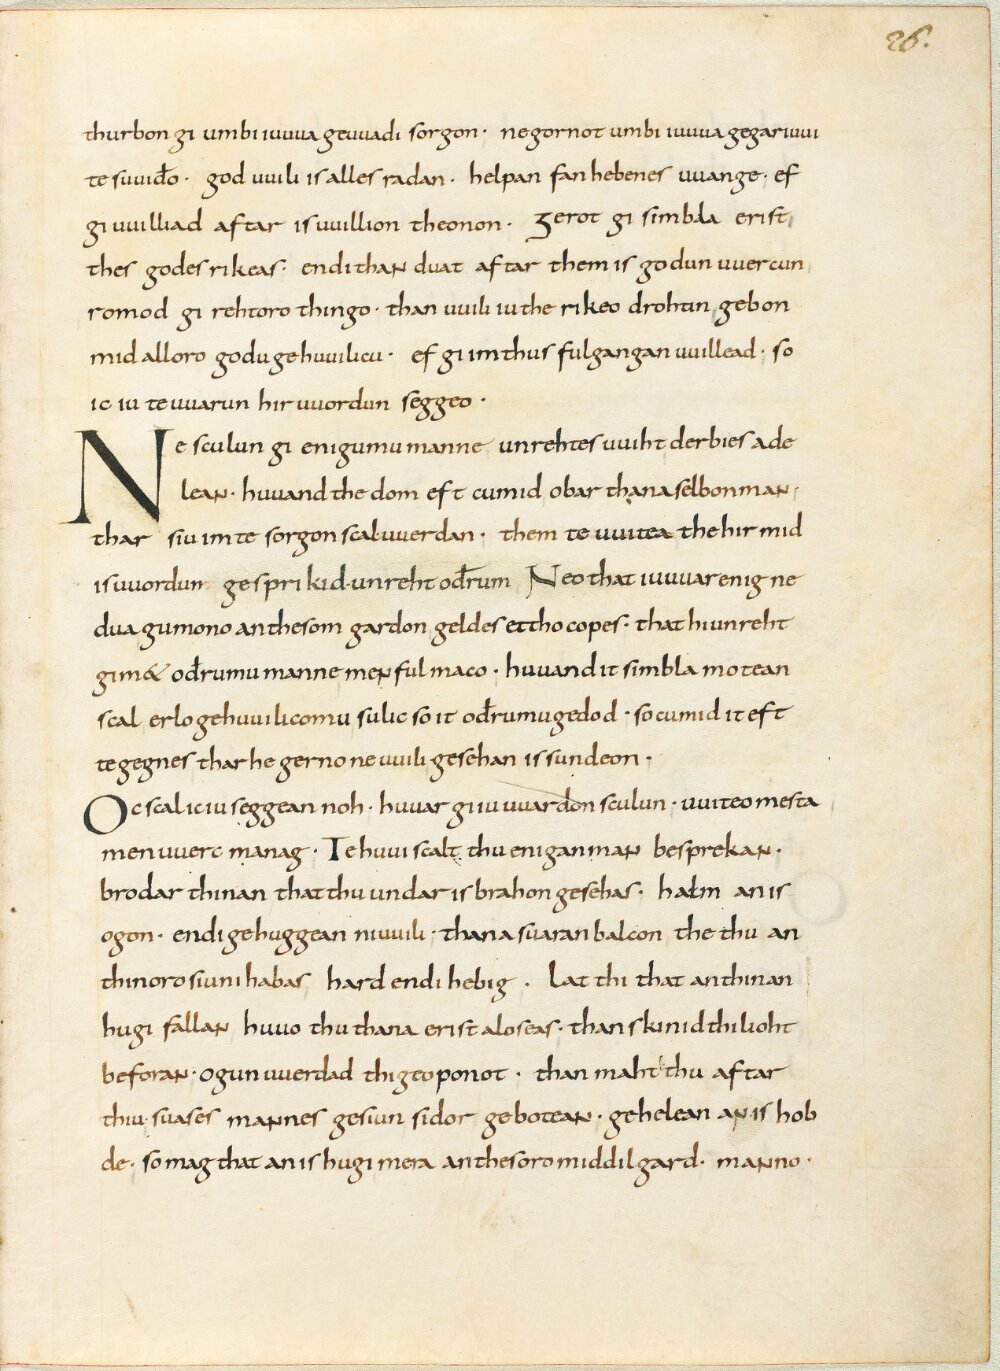 26.
thurbon gi umbi iuuua geuuadi sorgon· ne gornot umbi iuuua gegariuui
te suuiđo· god uuili is alles radan· helpan fan hebenes uuange· ef
gi uuilliad aftar is uuillion theonon· Gerot gi simbla erist
thes godes rikeas· endi than duat aftar them is godun uuercun
romod gi rehtoro thingo· than uuili iu the rikeo drohtin gebon
mid alloro godu gehuuilicu· ef gi im thus fulgangan uuillead· so
ic iu te uuarun hir uuordun seggeo·
Ne sculun gi enigumu manne unrehtes uuiht derbies ade
lean· huuand the dom eft cumid obar thana selbon man·
thar siu im te sorgon scal uuerdan· them te uuitea the hir mid
is uuordun gesprikid unreht ođrum Neo that iuuuar enig ne
dua gumono an thesom gardon geldes ettho copes· that hi unreht
gimet ođrumu manne menful maco· huuand it simbla motean
scal erlo gehuuilicomu sulic so it ođrumu gedod· so cumid it eft
tegegnes thar he gerno ne uuili gesehan is sundeon·
Oc scal ic iu seggean noh· huuar gi iu uuardon sculun· uuiteo mesta
men uuerc manag· Te huui scalt thu enigan man besprekan·
brodar thinan that thu undar is brahon gesehas· halm an is
ogon· endi gehuggean ni uuili· thana suaran balcon the thu an
thinoro siuni habas hard endi hebig· Lat thi that an thinan
hugi fallan huuo thu thana erist aloseas· than skinid thi lioht
beforan· ogun uuerdad thi geoponot· than maht thu aftar
thiu· suases mannes gesiun sidor gebotean· gehelean an is hob
de· so mag that an is hugi mera an thesoro middilgard· manno·